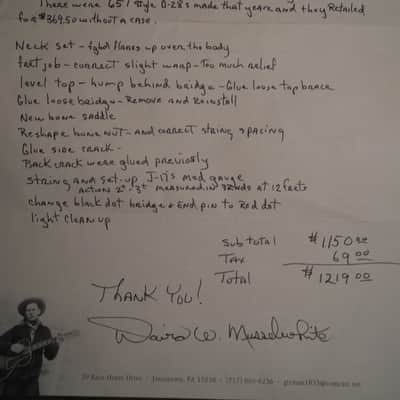 There were 657 style D-28s made that year and they Retailed
for $369.50 without a case.
Neck set - fgbd flares up over the body
fret job - correct slight warp - Too much relief
level top - hump behind bridge - Glue loose top brace
Glue loose bridge - Remove and Reinstall
New bone saddle
Reshape bone nut - and correct string spacing
Glue side crack -
Back crack were glued previously
string and set-up J-17's med gauge
action measured in 32nds at 12 frets
change black dot bridge & End pin to Red dot
light clean up
Sub total $1150.00
Tax 69.00
Total $1219.00
THANK YOU!
David W. Musselwhite
PA (717)